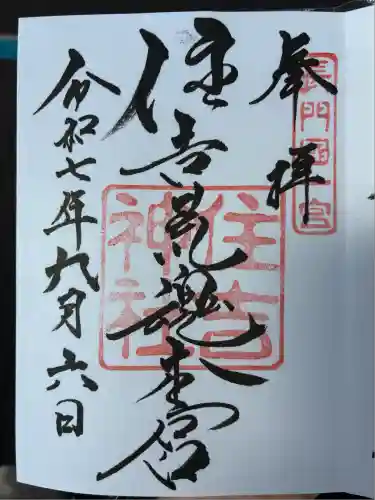 奉拝
長門國一宮
住吉荒魂本宮
住吉神社
令和七年九月六日